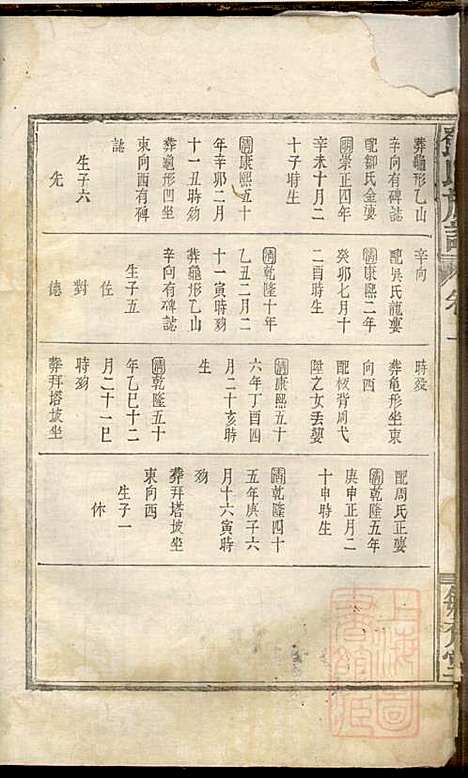 葬龜形乙山
辛向有碑誌
配鄒氏金婆
明崇正四年
辛未十月二
十子時生
清康熙五十
年辛卯二月
十一丑時歿
葬龜形凹坐
東向西有碑
誌
生子六
先
辛向
配吳氏龍婆
清康熙二年
癸卯七月十
二酉時生
清乾隆十年
乙丑二月二
十一寅時歿
葬龜形乙山
辛向有碑誌
生子五
佐
對
德
時歿
葬龜形坐東
向西
配校背周弋
陞之女丢婆
清康熙五十
六年丁酉四
月二十亥時
生
清乾隆五十
年乙巳十二
月二十一巳
時歿
葬拜塔坡坐
配周氏正婆
清乾隆五年
庚申正月二
十申時生
清乾隆四十
五年庚子六
月十六寅時
歿
葬拜塔坡坐
東向西
生子一
休
氏族譜
卷一
上海圖書館藏